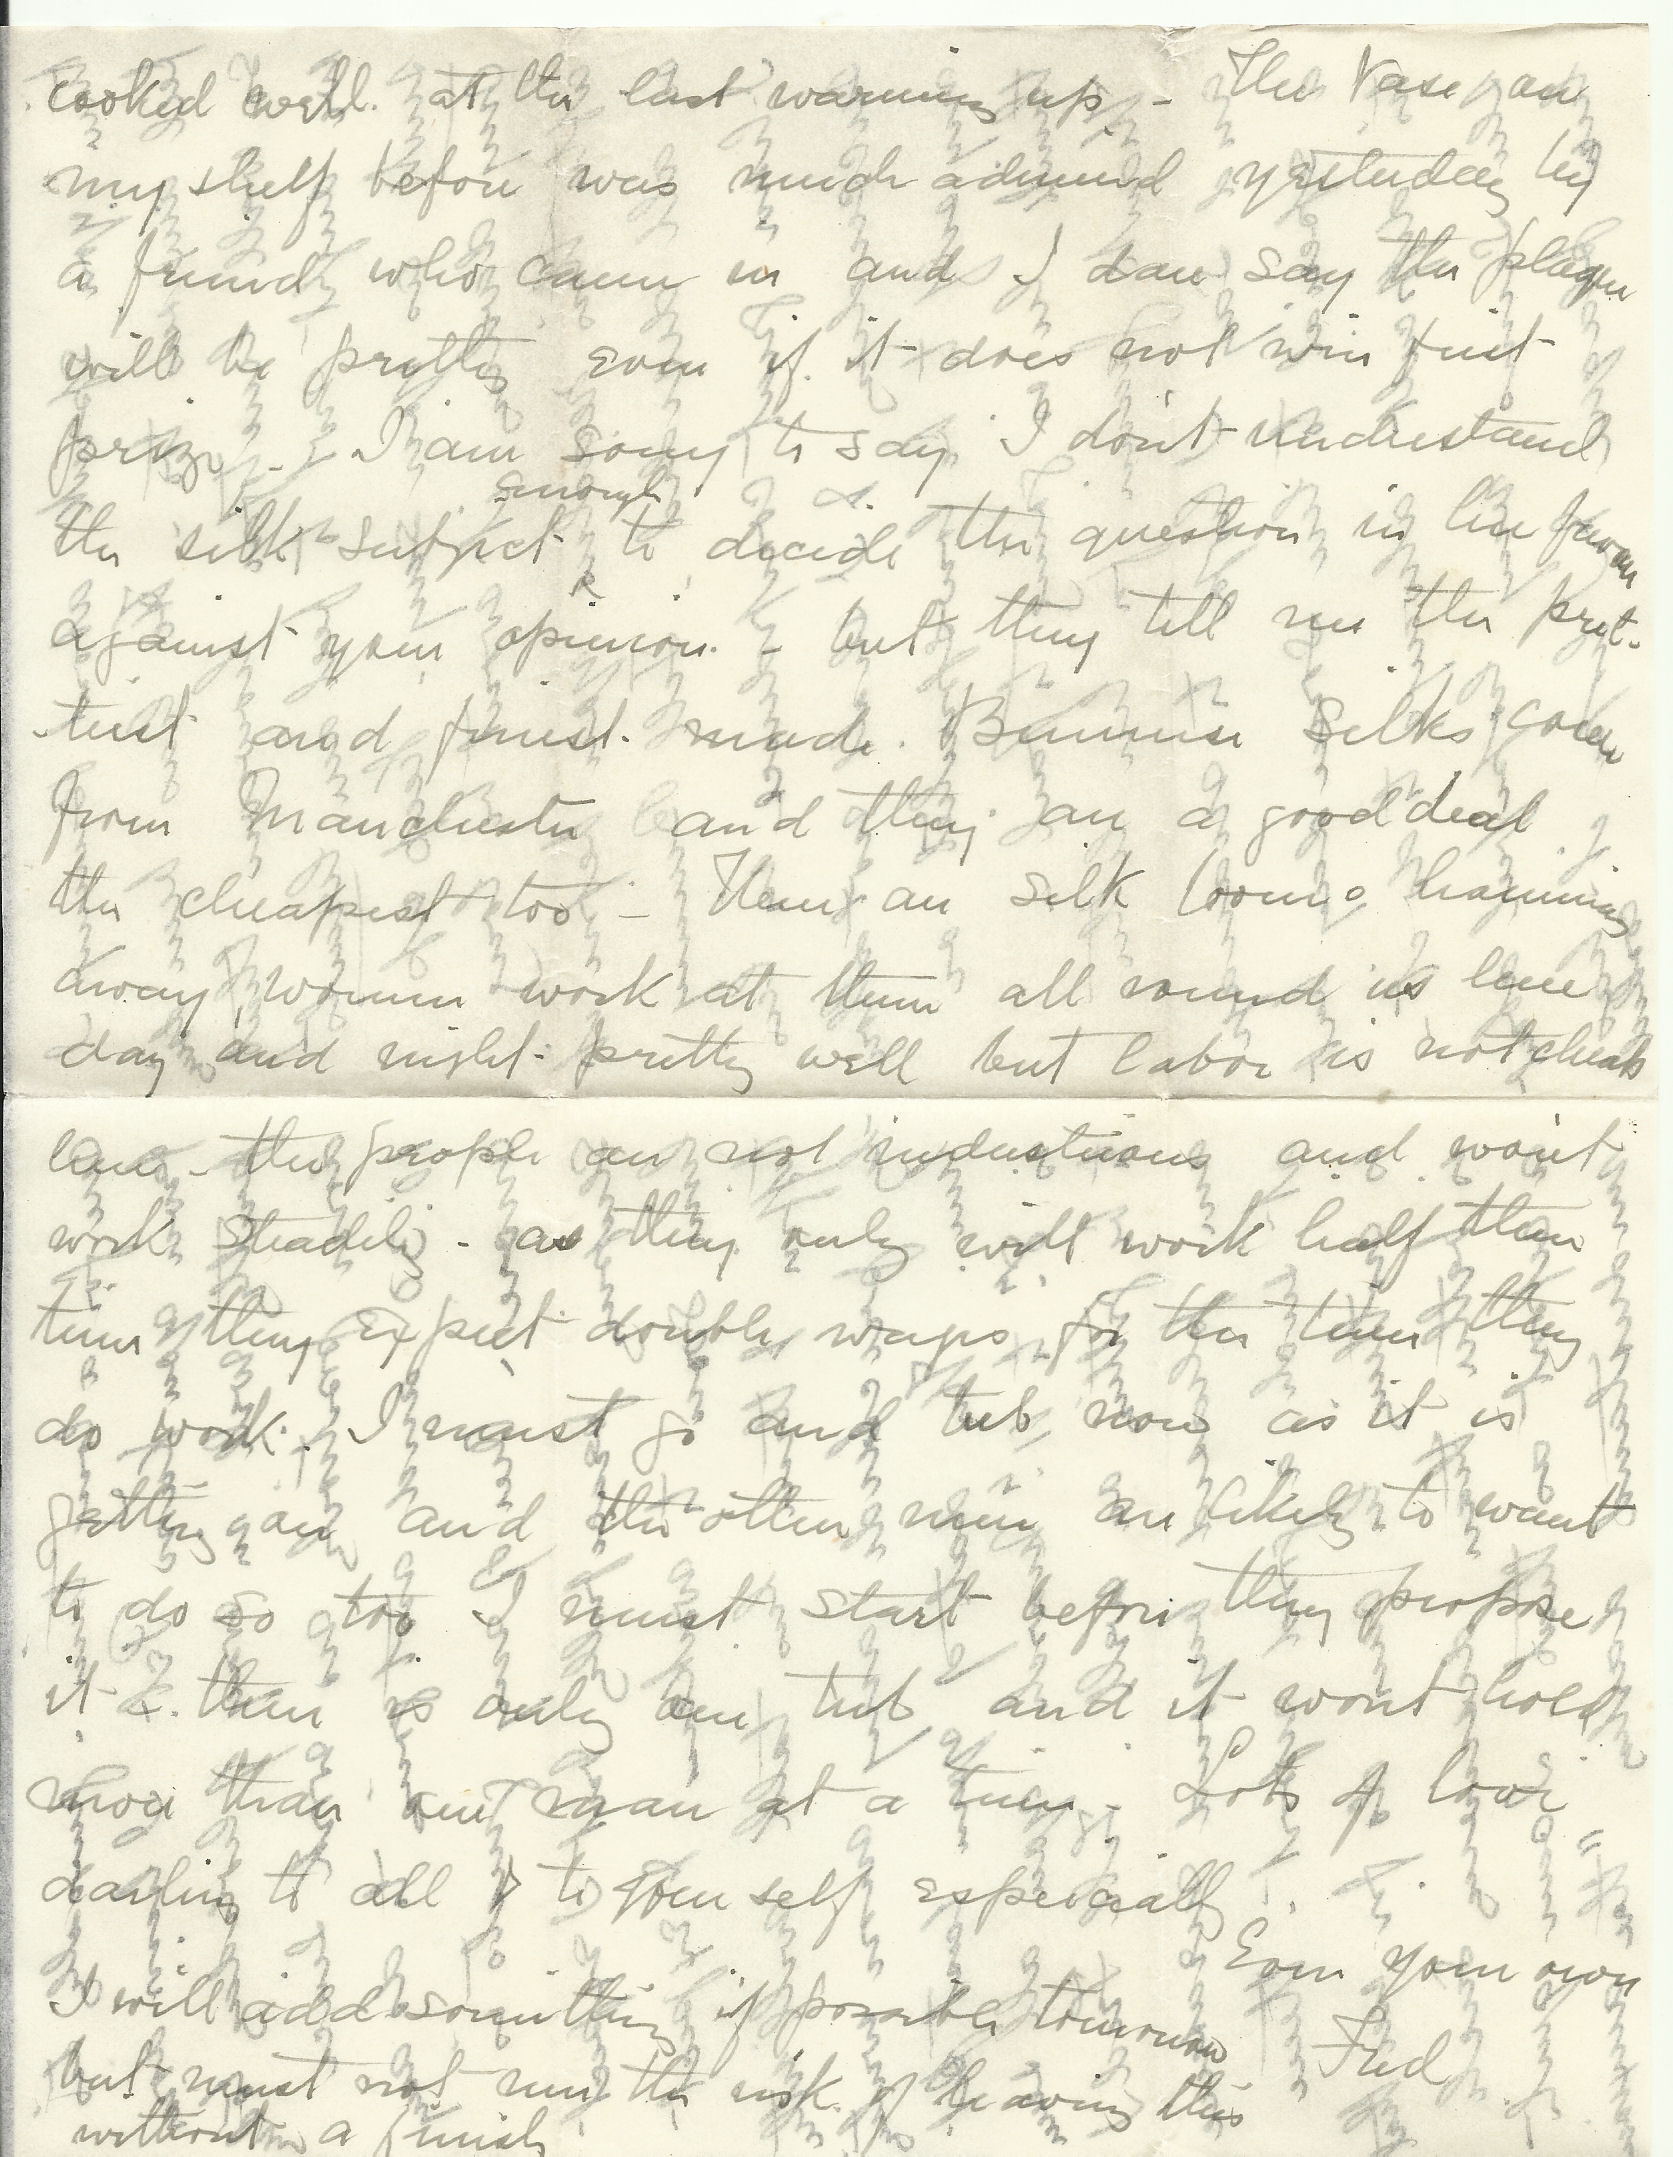 cooked well. at the last warming up - The Vase on
my shelf before was much admired yesterday by
a friend who came in and I dare say the plaque
will be pretty even if it does not win first
prize - I am sorry to say I don't understand
enough
the silk subject to decide the question in her favour
against your opinion. - but they tell me the pret-
tiest and finest made Burmese silks come
from Manchester and they are a good deal
the cheapest too - There are silk looms
away, women work at them all round us here
day and night pretty well but labor is not cheap
here - the people are not industrious and won't
work steadily - as they only will work half their
time they expect double wages for the time they
do work. I must go and tub now as it is
getting on and the other men are likely to want
to do so too I must start before they propose
it &. there is only one tub and it wont hold
more than one man at a time - Lots of love
darling to all & to yourself especially
Ever your own
Fred
I will add something if possible tomorrow
but must not run the risk of leaving this
without a finish